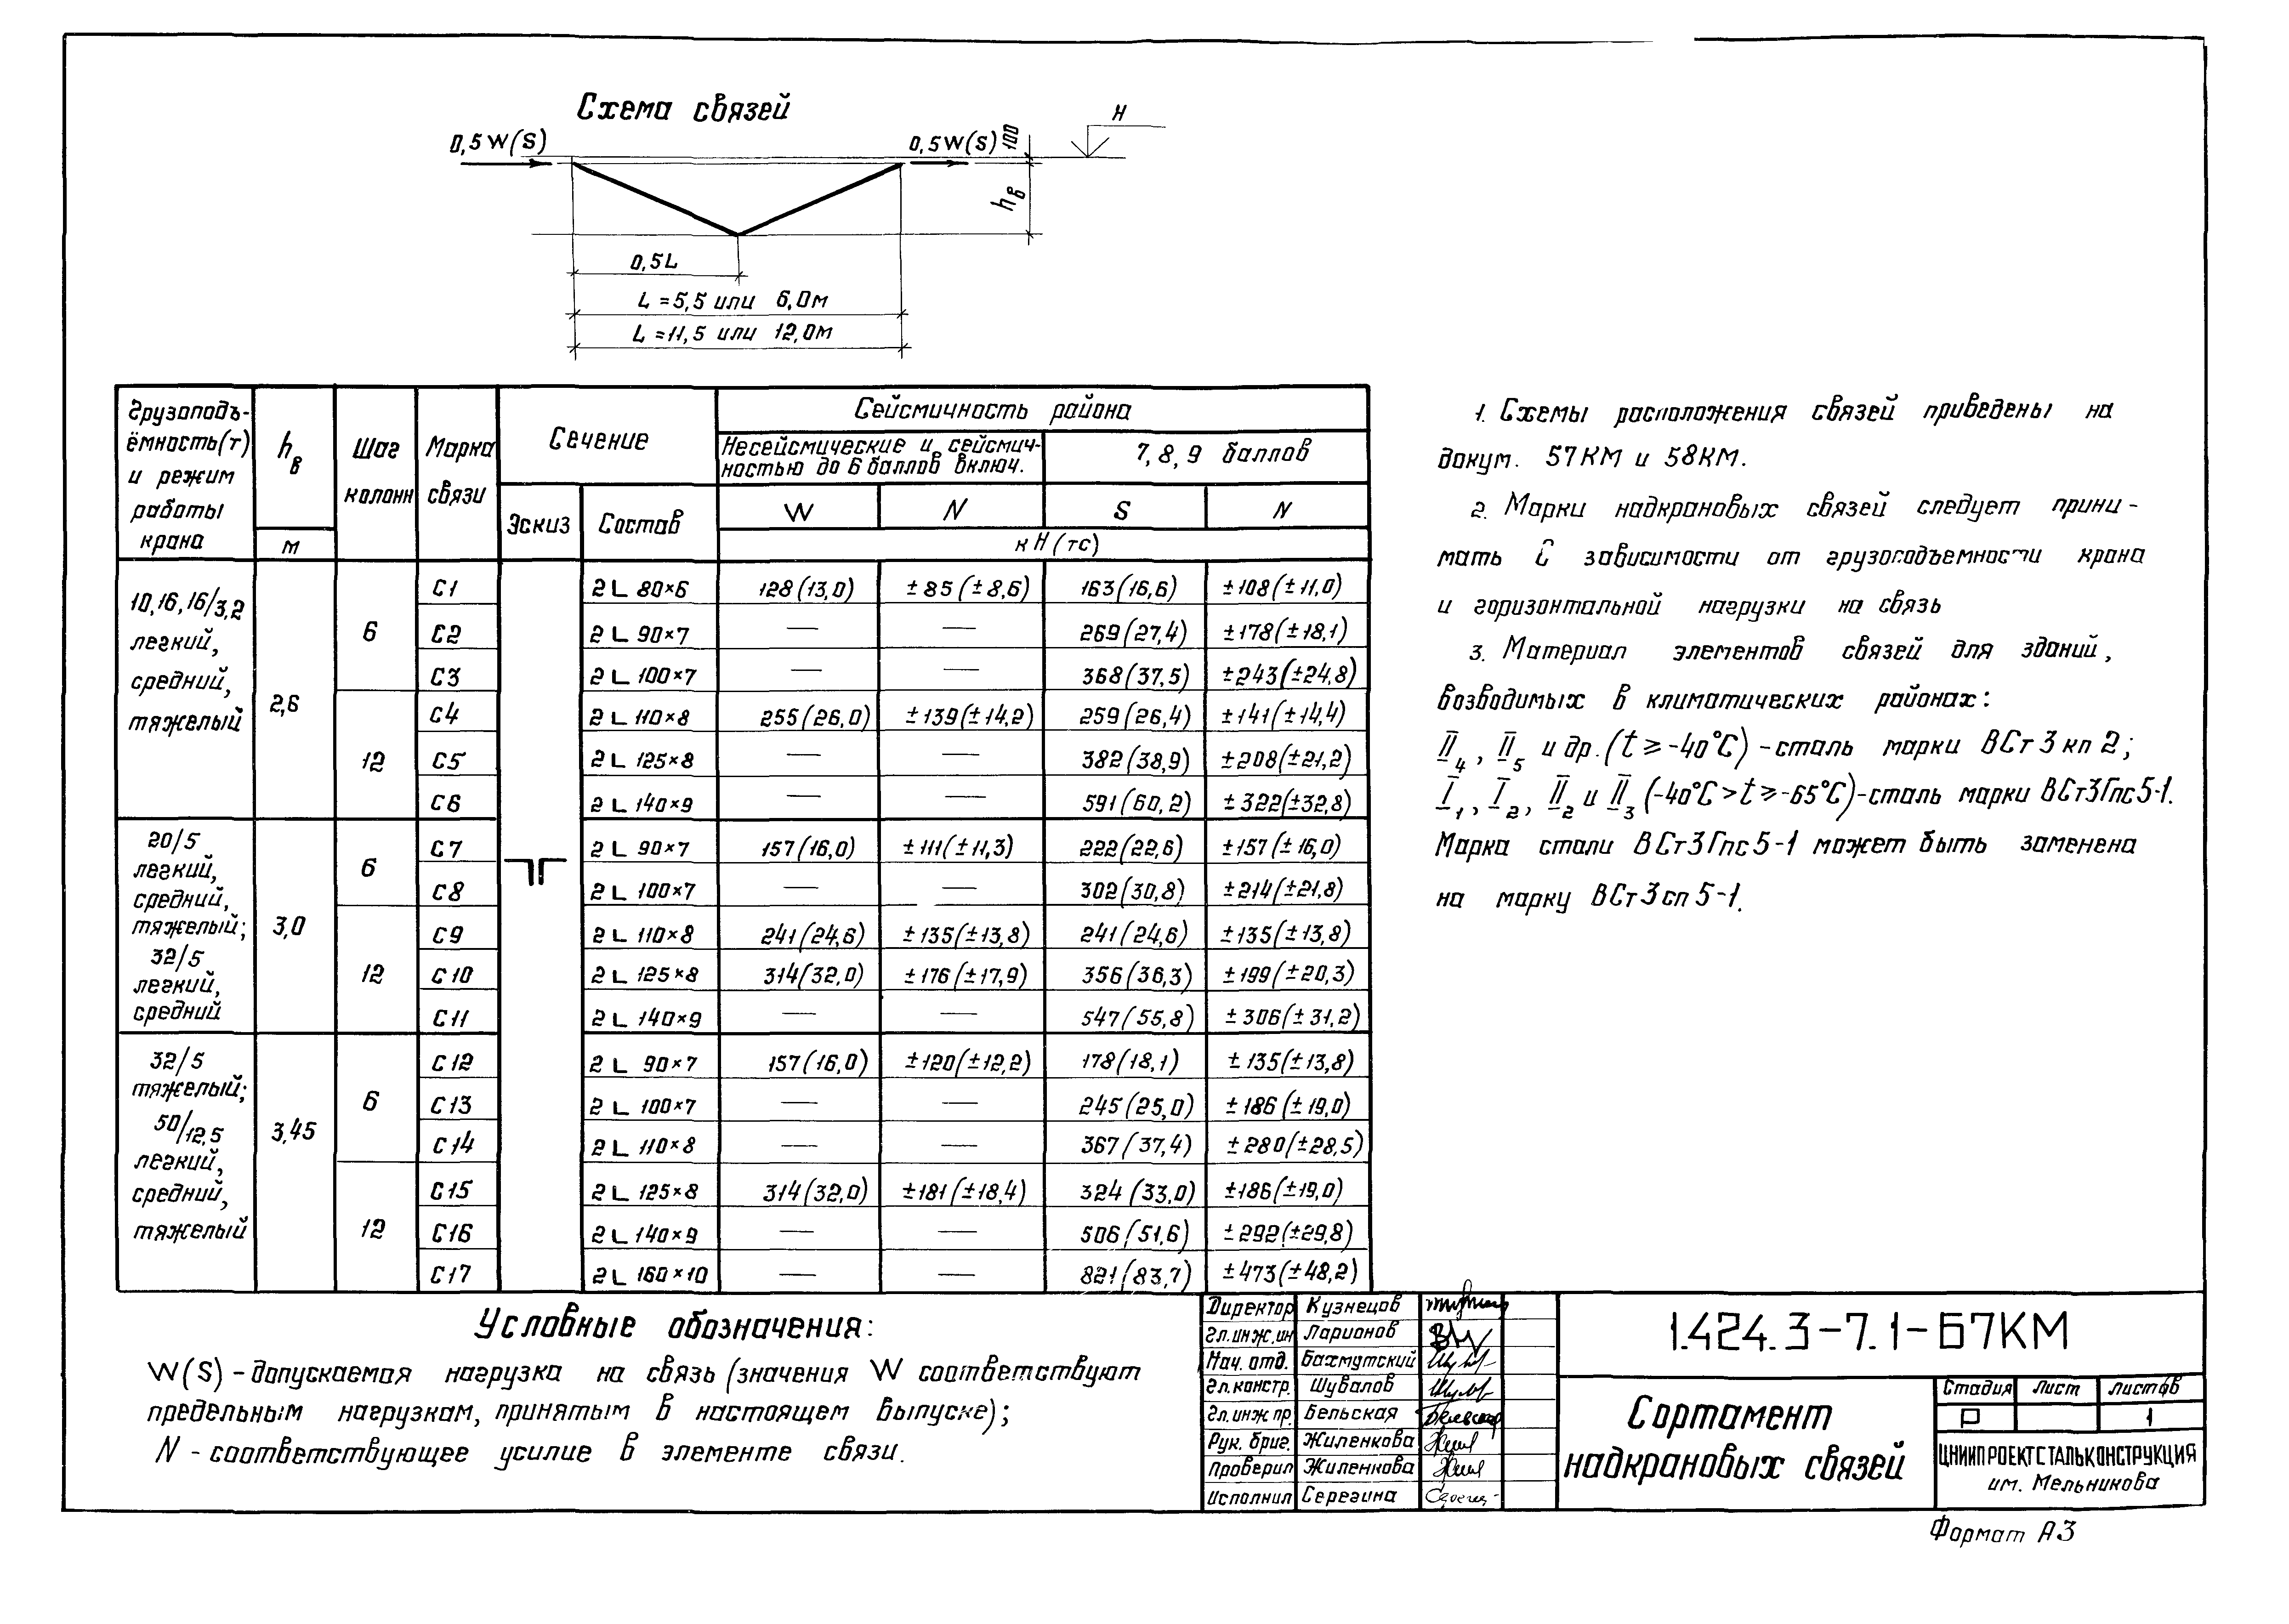 Схема связей
0,5W(S)
0,5W(S)
100
H
hв
0,5L
L=5,5 или 6,0м
L=11,5 или 12,0м
Грузоподъ-
ёмность(т)
и режим
работы
крана
hв
м
Шаг
колонн
Марка
связи
Сечение
Эскиз
Состав
Сейсмичность района
Несейсмические и сейсмич-
ностью до 6 баллов включ.
7, 8, 9 баллов
W N S N
кН(тс)
10,16,16/3,2
легкий,
средний,
тяжелый
2,6
6
С1 2L 80×6 128(13,0) ±85(±8,6) 163(16,6) ±108(±11,0)
С2 2L 90×7 — — 269(27,4) ±178(±18,1)
С3 2L 100×7 — — 368(37,5) ±243(±24,8)
12
С4 2L 110×8 255(26,0) ±139(±14,2) 259(26,4) ±141(±14,4)
С5 2L 125×8 — — 382(38,9) ±208(±21,2)
С6 2L 140×9 — — 591(60,2) ±322(±32,8)
20/5
легкий,
средний,
тяжелый;
32/5
легкий,
средний
3,0
6
С7 2L 90×7 157(16,0) ±111(±11,3) 222(22,6) ±157(±16,0)
С8 2L 100×7 — — 302(30,8) ±214(±21,8)
12
С9 2L 110×8 241(24,6) ±135(±13,8) 241(24,6) ±135(±13,8)
С10 2L 125×8 314(32,0) ±176(±17,9) 356(36,3) ±199(±20,3)
С11 2L 140×9 — — 547(55,8) ±306(±31,2)
32/5
тяжелый;
50/12,5
легкий,
средний,
тяжелый
3,45
6
С12 2L 90×7 157(16,0) ±120(±12,2) 178(18,1) ±135(±13,8)
С13 2L 100×7 — — 245(25,0) ±186(±19,0)
С14 2L 110×8 — — 367(37,4) ±280(±28,5)
12
С15 2L 125×8 314(32,0) ±181(±18,4) 324(33,0) ±186(±19,0)
С16 2L 140×9 — — 506(51,6) ±292(±29,8)
С17 2L 160×10 — — 821(83,7) ±473(±48,2)
1. Схемы расположения связей приведены на
докум. 57КМ и 58КМ.
2. Марки надкрановых связей следует прини-
мать в зависимости от грузоподъемности крана
и горизонтальной нагрузки на связь
3. Материал элементов связей для зданий,
возводимых в климатических районах:
II4, II5 и др. (t ≥ -40°С) - сталь марки ВСт3кп2;
I1, I2, II2 и II3 (-40°С > t ≥ -65°С) - сталь марки ВСт3Гпс5-1.
Марка стали ВСт3Гпс5-1 может быть заменена
на марку ВСт3сп5-1.
Условные обозначения:
W(S) - допускаемая нагрузка на связь (значения W соответствуют
предельным нагрузкам, принятым в настоящем выпуске);
N - соответствующее усилие в элементе связи.
Директор Кузнецов
Гл.инж.ин Ларионов
Нач. отд. Бахмутский
Гл.констр. Шувалов
Гл.инж.пр. Бельская
Рук. бриг. Жиленкова
Проверил Жиленкова
Исполнил Серегина
1.424.3-7.1-67КМ
Сортамент
надкрановых связей
Стадия Лист Листов
Р 1
ЦНИИПРОЕКТСТАЛЬКОНСТРУКЦИЯ
им. Мельникова
Формат А3